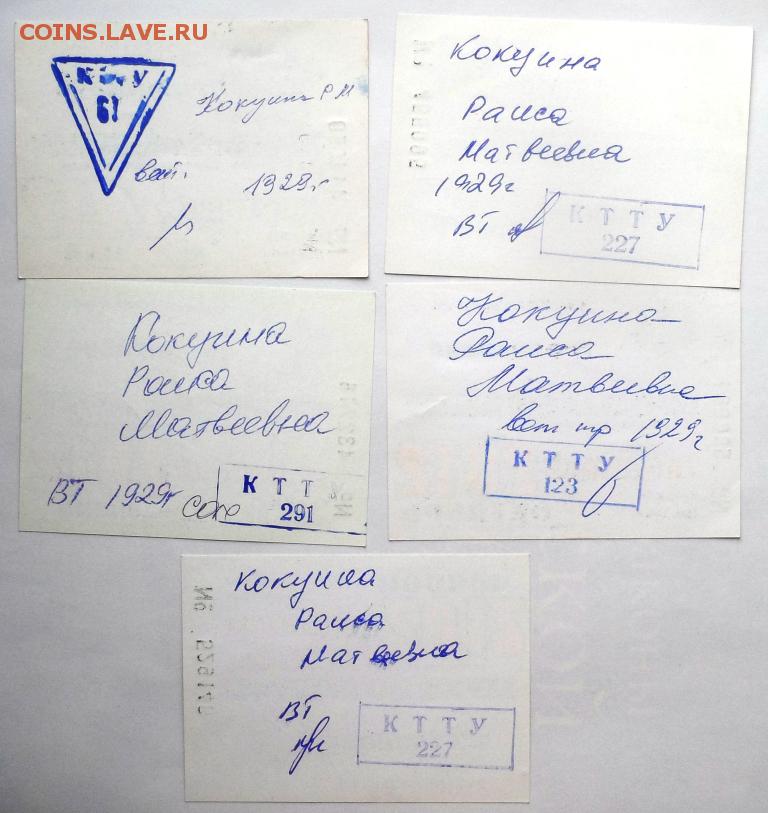 COINS.LAVE.RU
КТТУ
61
Кокуина Р М
вет.
1929г
Кокуина
Раиса
Матвеевна
1929г
ВТ
К Т Т У
227
Кокуина
Раиса
Матвеевна
ВТ 1929г
К Т Т
291
Кокуина
Раиса
Матвеевна
вет тр 1929г
К Т Т У
123
Кокуина
Раиса
Матвеевна
ВТ
К Т Т У
227